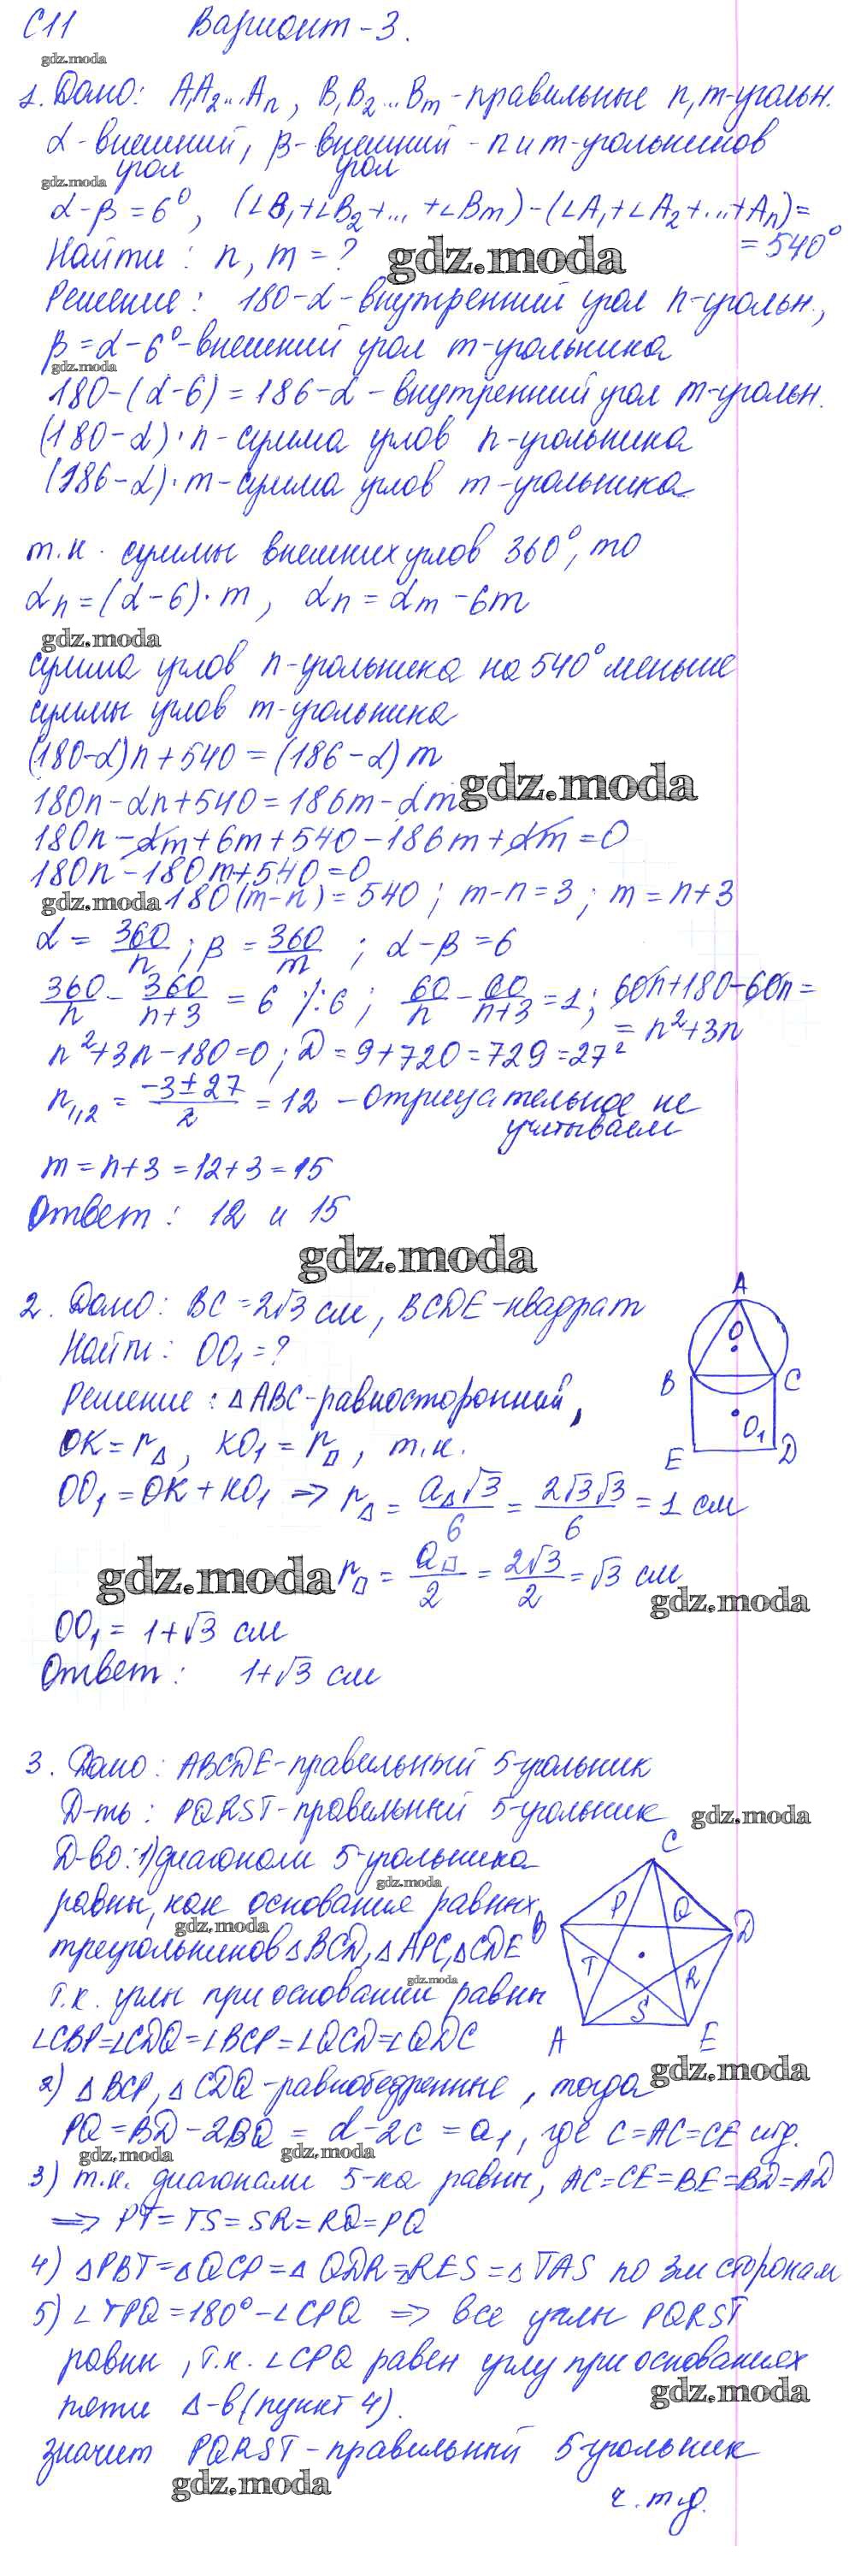 С11 Вариант-3.
gdz.moda
1. Дано: A₁A₂...Aₙ, B₁B₂...Bₘ-правильные n,m-угольн.
α-внешний, β-внешний - n и m-угольников
угол угол
gdz.moda
α-β=6°, (∠B₁+∠B₂+...+∠Bm)-(∠A₁+∠A₂+...+Aₙ)=
=540°
Найти: n, m=?
gdz.moda
Решение: 180-α-внутренний угол n-угольн.,
β=α-6°-внешний угол m-угольника
gdz.moda
180-(α-6)=186-α-внутренний угол m-угольн.
(180-α)·n-сумма углов n-угольника
(186-α)·m-сумма углов m-угольника
т.к. суммы внешних углов 360°, то
αn=(α-6)·m, αn=αm-6m
gdz.moda
сумма углов n-угольника на 540° меньше
суммы углов m-угольника
(180-α)n+540=(186-α)m
gdz.moda
180n-αn+540=186m-αm
180n-αm+6m+540-186m+αm=0
180n-180m+540=0
gdz.moda
180(m-n)=540; m-n=3; m=n+3
α=360/n; β=360/m; α-β=6
360/n-360/(n+3)=6 /:6; 60/n-60/(n+3)=1; 60n+180-60n=
=n²+3n
n²+3n-180=0; D=9+720=729=27²
n₁,₂=(-3±27)/2=12-отрицательное не
учитываем
m=n+3=12+3=15
Ответ: 12 и 15
gdz.moda
2. Дано: BC=2√3 см, BCDE-квадрат
Найти: OO₁=?
Решение: △ABC-равносторонний,
OK=r△, KO₁=r□, т.к.
OO₁=OK+KO₁ ⇒ r△=a△√3/6=2√3√3/6=1 см
gdz.moda
r□=a□/2=2√3/2=√3 см
gdz.moda
OO₁=1+√3 см
Ответ: 1+√3 см
A
O
B C
O₁
E D
3. Дано: ABCDE-правильный 5-угольник
Д-ть: PQRST-правильный 5-угольник
gdz.moda
Д-во: 1) диагонали 5-угольника
gdz.moda
равны, как основания равных
gdz.moda
треугольников △BCD, △APC, △CDE
gdz.moda
т.к. углы при основании равны
∠CBP=∠CDQ=∠BCP=∠QCD=∠QDC
C
P Q
B D
T R
S
A E
gdz.moda
2) △BCP, △CDQ-равнобедренные, тогда
PQ=BD-2BQ=d-2c=a₁, где c=AC=CE итд.
gdz.moda gdz.moda
3) т.к. диагонали 5-ка равны, AC=CE=BE=BD=AD
⇒ PT=TS=SR=RQ=PQ
4) △PBT=△QCP=△QDR=RES=△TAS по 3м сторонам
5) ∠TPQ=180°-∠CPQ ⇒ все углы PQRST
равны, т.к. ∠CPQ равен углу при основаниях
gdz.moda
пяти △-в (пункт 4).
значит PQRST-правильный 5-угольник
gdz.moda
ч.т.д.